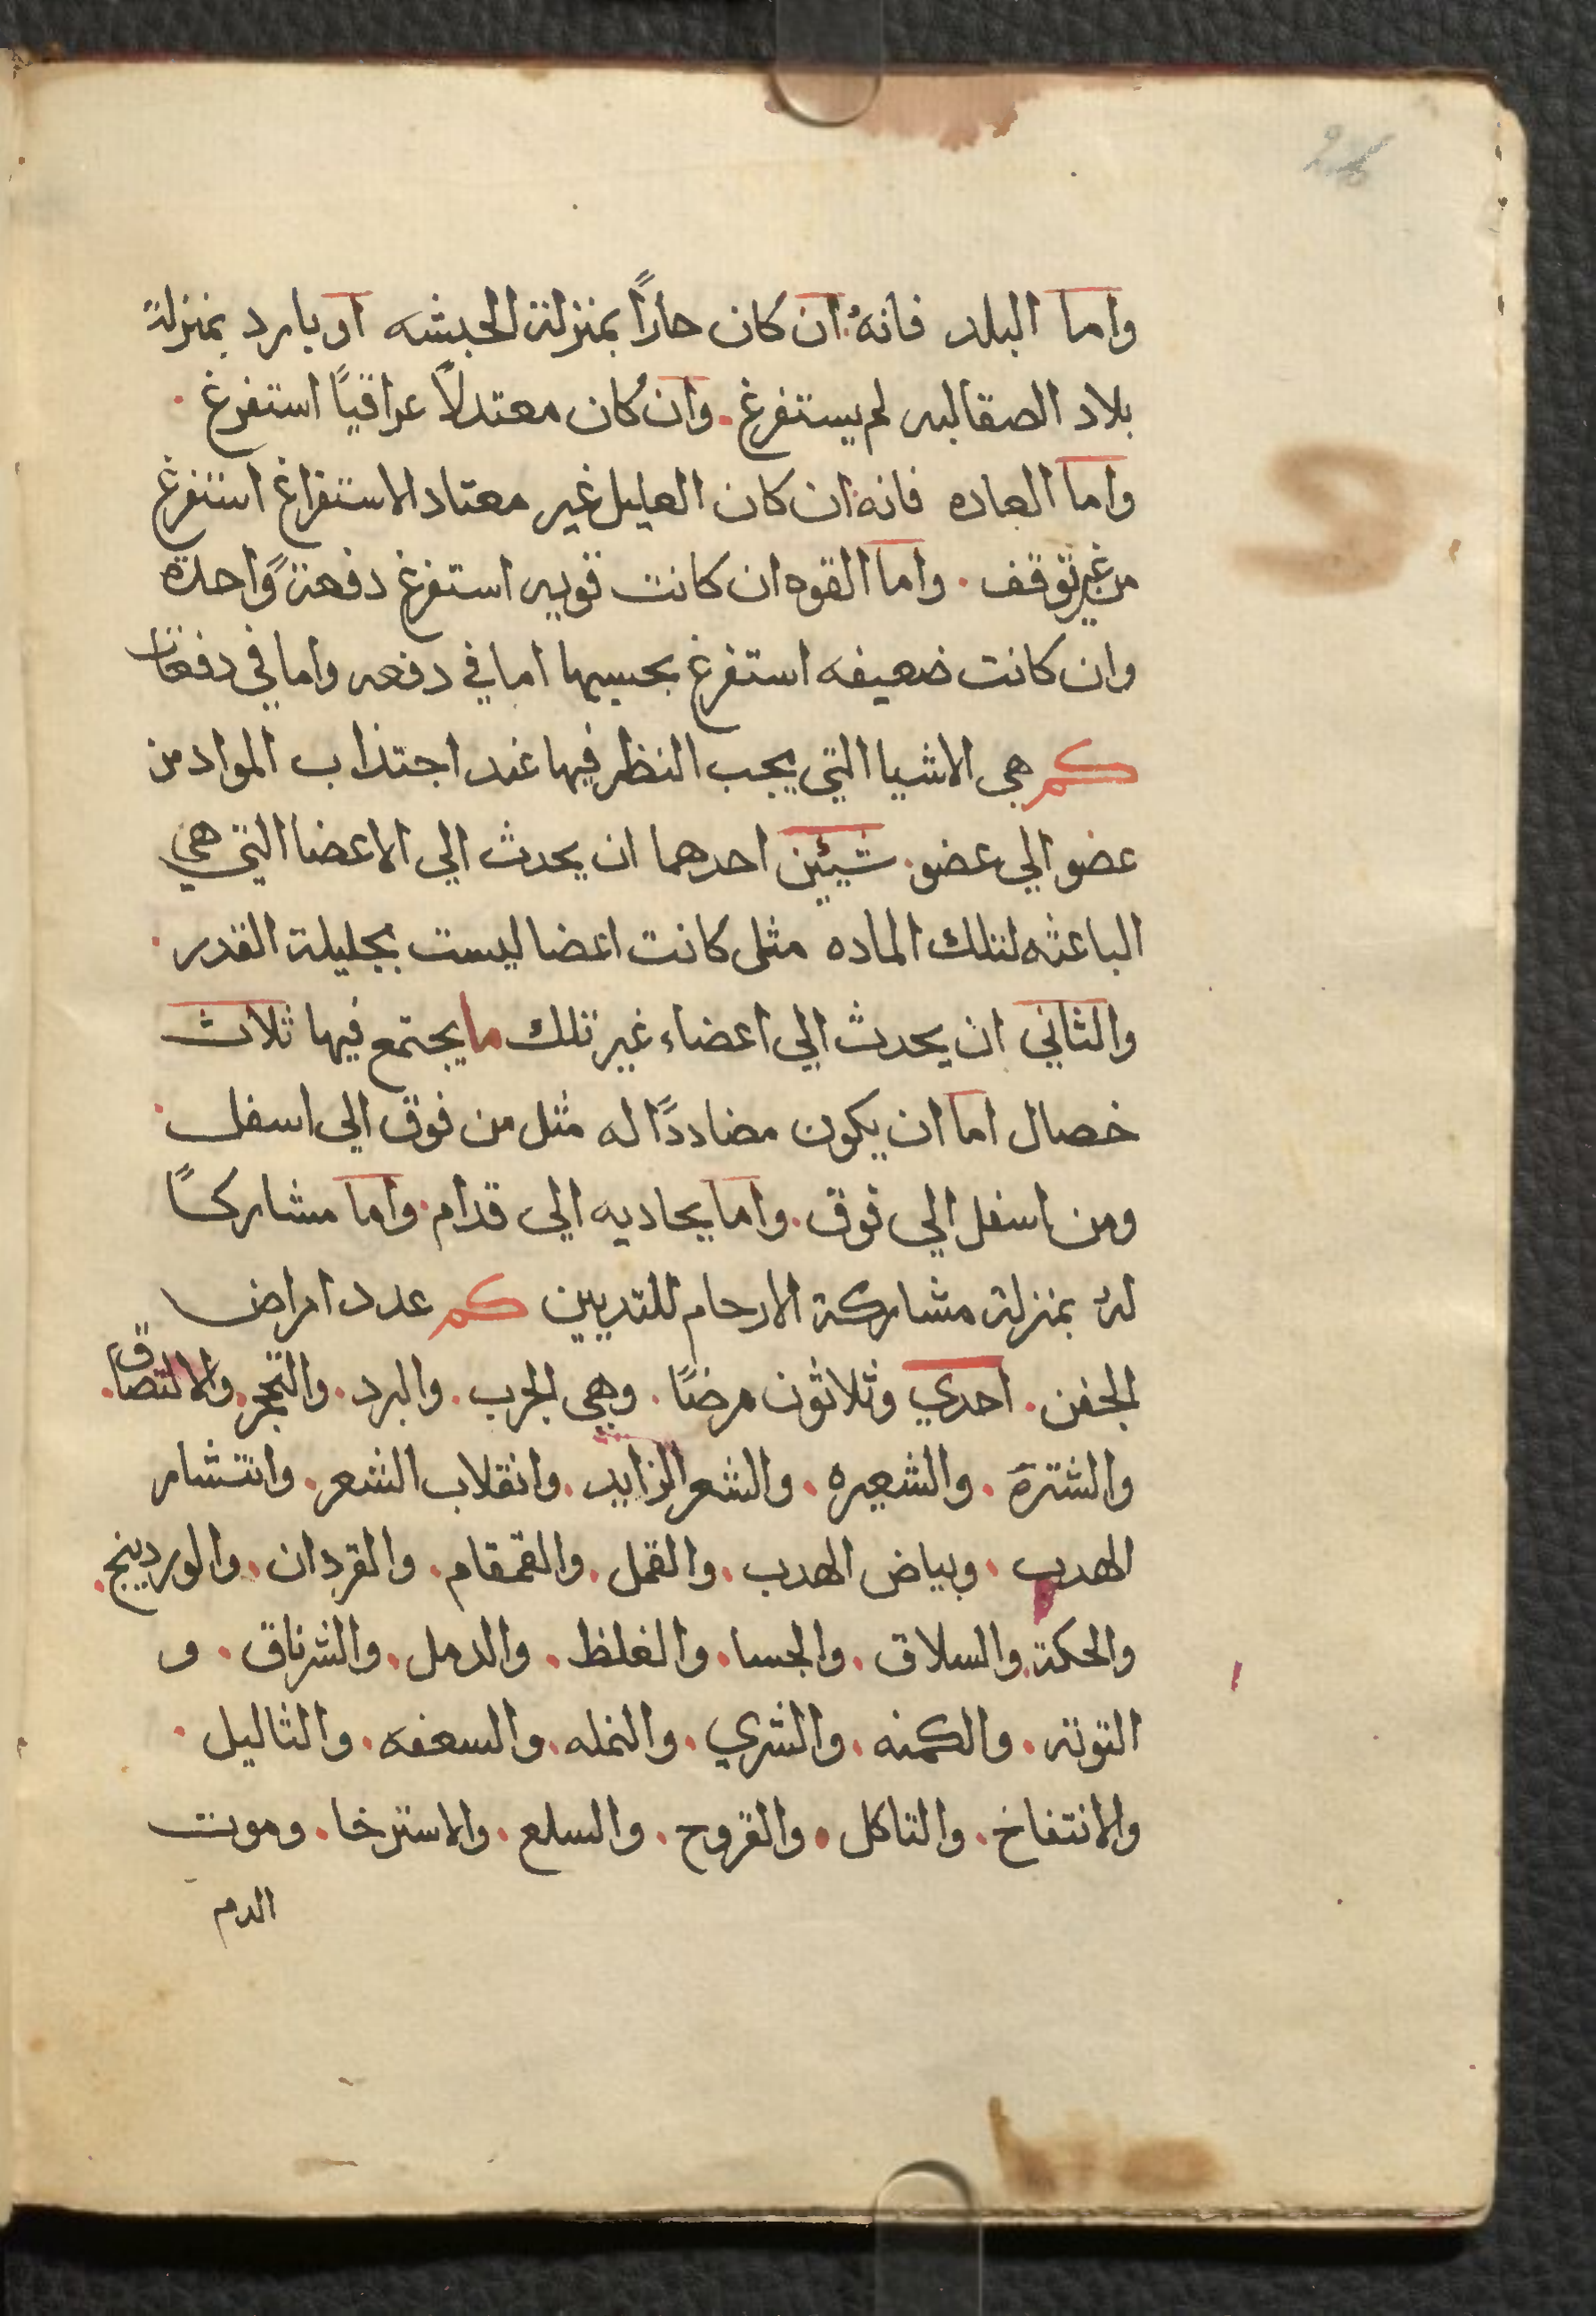 26
واما البلد فانهُ ان كان حاراً بمنزلة الحبشه او بارد بمنزلة
بلاد الصقالبه لم يستفرغ. وان كان معتدلاً عراقياً استفرغ.
واما العاده فانه ان كان العليل غير معتاد الاستفراغ استفرغ
من غير توقف. واما القوه ان كانت قويه استفرغ دفعةً واحدة
وان كانت ضعيفه استفرغ بحسبها اما في دفعه واما في دفعات
كم هي الاشيا التي يجب النظر فيها عند اجتذاب المواد من
عضو الي عضو. شيئين احدهما ان يحدث الي الاعضا التي هي
الباعثه لتلك الماده مثل كانت اعضا ليست بجليلة القدر.
والثاني ان يحدث الي اعضاء غير تلك ما يجتمع فيها ثلاث
خصال اما ان يكون مضادداً له مثل من فوق الي اسفل.
ومن اسفل الي فوق. واما يحاديه الي قدام. واما مشاركاً
لهُ بمنزلة مشاركة الارحام للتديين كم عدد امراض
الجفن. احدي وثلاثون مرضاً. وهي الجرب. والبرد. والتحجر. والالتصاق.
والشترة. والشعيره. والشعر الزايد. وانقلاب الشعر. وانتشار
الهدب. وبياض الهدب. والقمل. والقمقام. والقردان. والوردينج.
والحكة. والسلاق. والجسا. والغلظ. والدمل. والشرناق. و
التوته. والكمنه. والشري. والنمله. والسعفه. والثاليل.
والانتفاخ. والتاكل. والقروح. والسلع. والاسترخا. وموت
الدم